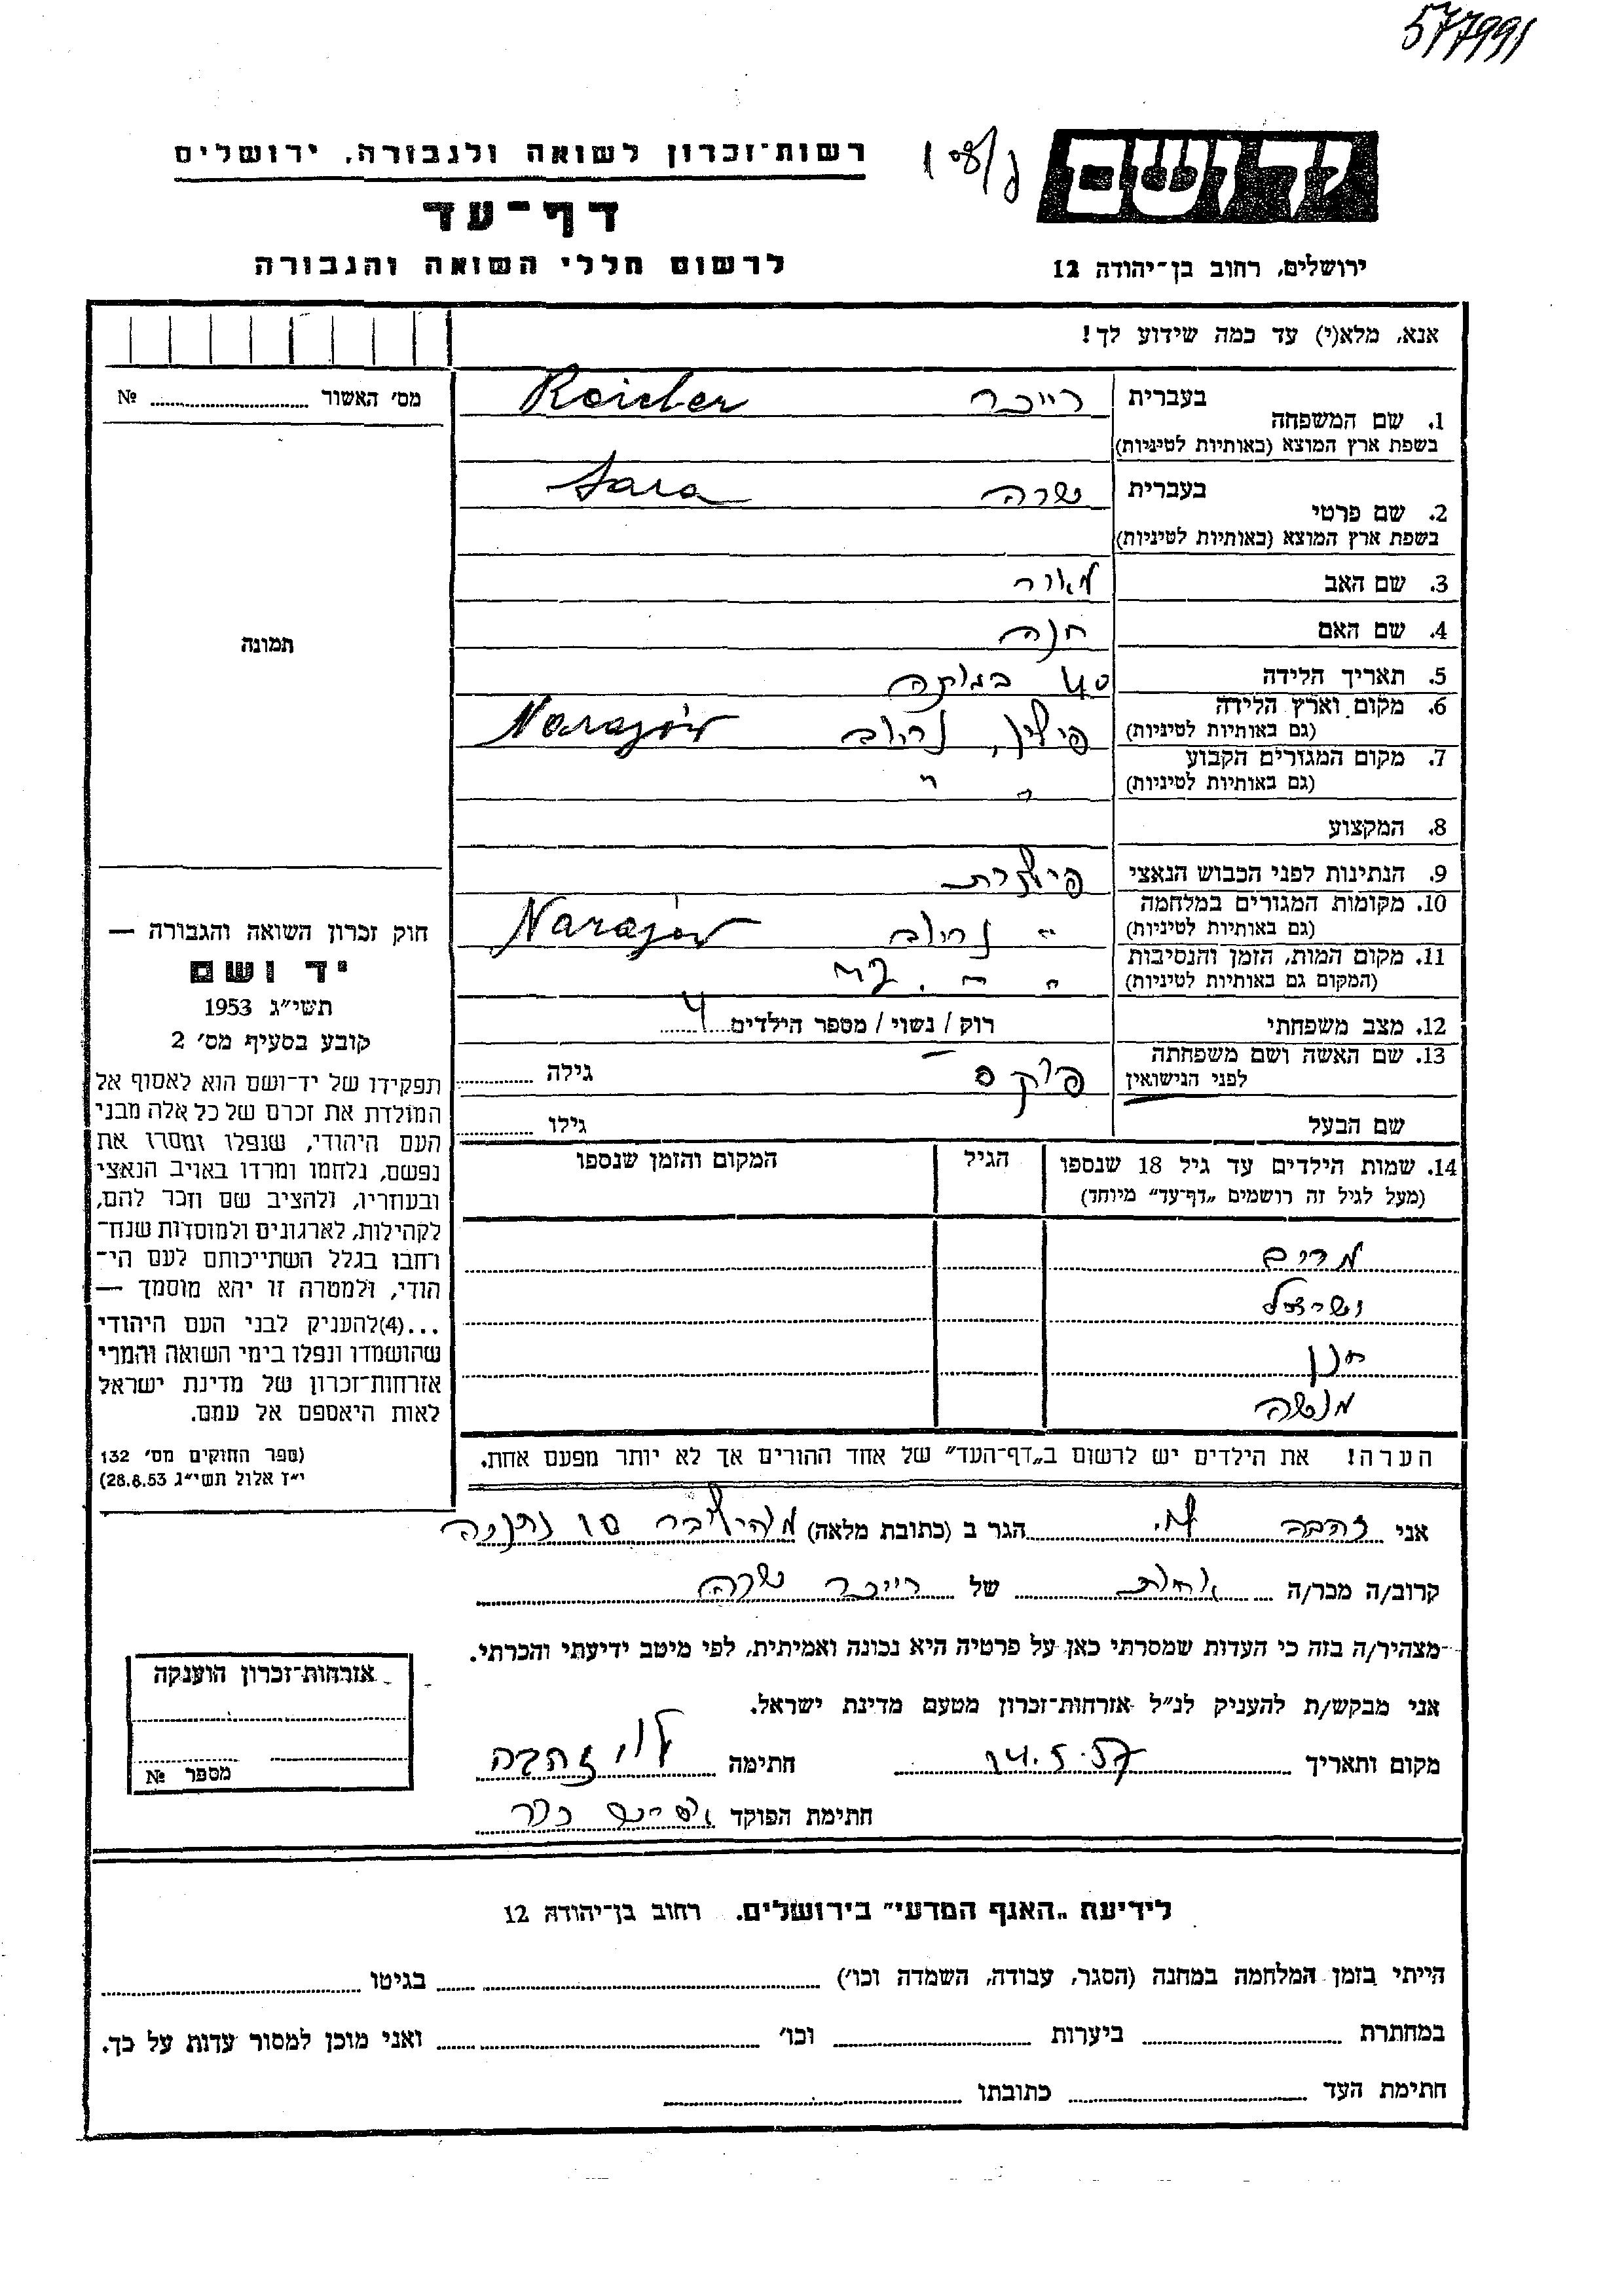 577991
יד ושם
רשות־זכרון לשואה ולגבורה, ירושלים
דף־עד
לרשום חללי השואה והגבורה
ירושלים, רחוב בן־יהודה 12
אנא, מלא(י) עד כמה שידוע לך!
מס' האשור № ........
תמונה
1. שם המשפחה בעברית רייכר Reicher
בשפת ארץ המוצא (באותיות לטיניות)
2. שם פרטי בעברית שרה Sara
בשפת ארץ המוצא (באותיות לטיניות)
3. שם האב מאור
4. שם האם חנה
5. תאריך הלידה 40 בערך
6. מקום וארץ הלידה פולין, נריוב Narajów
(גם באותיות לטיניות)
7. מקום המגורים הקבוע " "
(גם באותיות לטיניות)
8. המקצוע
9. הנתינות לפני הכבוש הנאצי פולנית
10. מקומות המגורים במלחמה " נריוב Narajów
(גם באותיות לטיניות)
11. מקום המות, הזמן והנסיבות " "
(המקום גם באותיות לטיניות)
12. מצב משפחתי רוק / נשוי / מספר הילדים 4
13. שם האשה ושם משפחתה פוקס גילה ........
לפני הנישואין
שם הבעל גילו ........
14. שמות הילדים עד גיל 18 שנספו הגיל המקום והזמן שנספו
(מעל לגיל זה רושמים „דף־עד" מיוחד)
מרים
ישראל
חנן
מנשה
הערה! את הילדים יש לרשום ב„דף־העד" של אחד ההורים אך לא יותר מפעם אחת.
חוק זכרון השואה והגבורה —
יד ושם
תשי"ג 1953
קובע בסעיף מס' 2
תפקידו של יד־ושם הוא לאסוף אל
המולדת את זכרם של כל אלה מבני
העם היהודי, שנפלו ומסרו את
נפשם, נלחמו ומרדו באויב הנאצי
ובעוזריו, ולהציב שם וזכר להם,
לקהילות, לארגונים ולמוסדות שנח־
רחבו בגלל השתייכותם לעם הי־
הודי, ולמטרה זו יהא מוסמך —
...(4)להעניק לבני העם היהודי
שהושמדו ונפלו בימי השואה והמרי
אזרחות־זכרון של מדינת ישראל
לאות היאספם אל עמם.
(ספר החוקים מס' 132
י"ז אלול תשי"ג 28.8.53)
אני זהבה לוי הגר ב (כתובת מלאה) נתניה
קרוב/ה מכר/ה אחות של רייכר שרה
מצהיר/ה בזה כי העדות שמסרתי כאן על פרטיה היא נכונה ואמיתית, לפי מיטב ידיעתי והכרתי.
אני מבקש/ת להעניק לנ"ל אזרחות־זכרון מטעם מדינת ישראל.
מקום ותאריך 14.5.57 חתימה לוי זהבה
חתימת הפוקד
אזרחות־זכרון הוענקה
מספר №
לידיעת „האגף המדעי" בירושלים. רחוב בן־יהודה 12
הייתי בזמן המלחמה במחנה (הסגר, עבודה, השמדה וכו') ........ בגיטו ........
במחתרת ........ ביערות ........ וכו' ........ ואני מוכן למסור עדות על כך.
חתימת העד ........ כתובתו ........